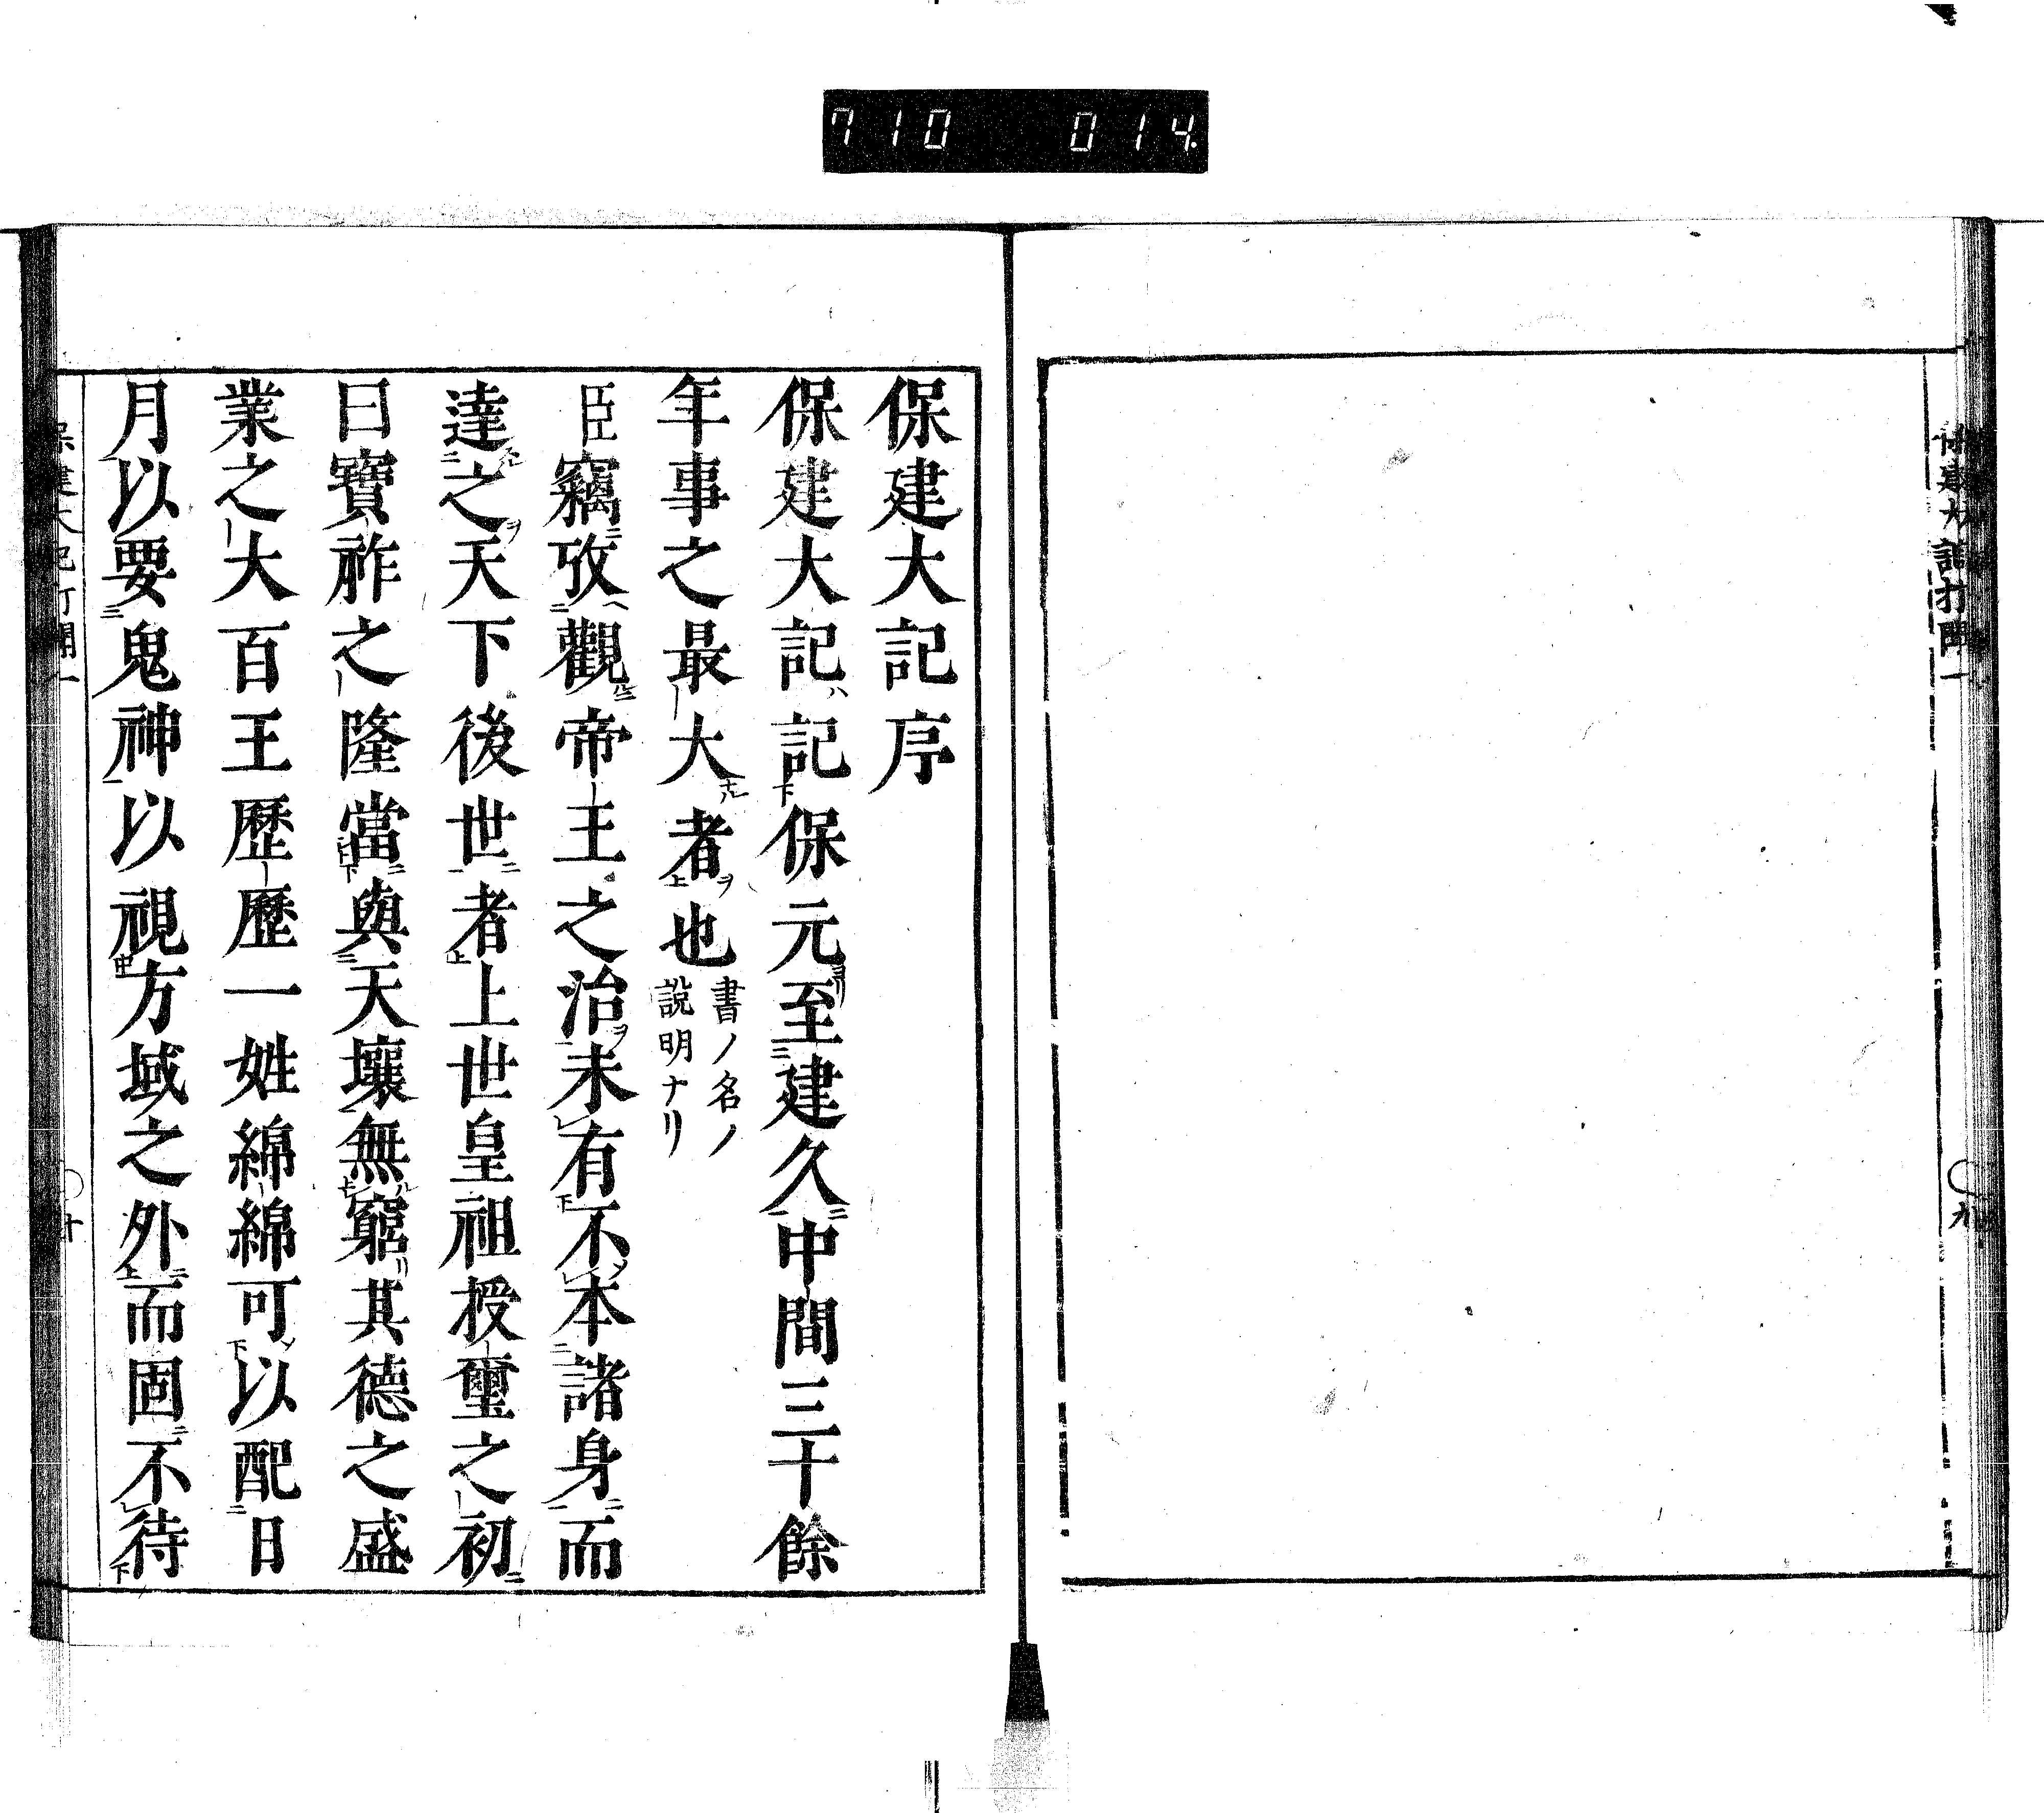 710 014
保建大記打聞一
九
保建大記序
保建大記記保元至建久中間三十餘
年事之最大者也書ノ名ノ
説明ナリ
臣竊攷觀帝王之治未有不本諸身而
達之天下後世者上世皇祖授璽之初
曰寶祚之隆當與天壤無窮其德之盛
業之大百王歷歷一姓綿綿可以配日
月以要鬼神以視方域之外而固不待
保建大記打聞一
十